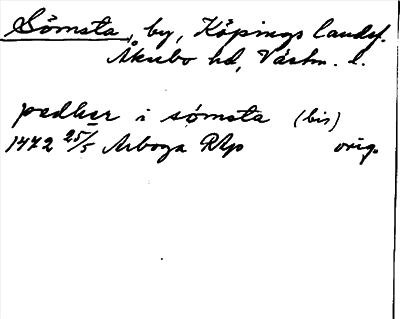 Sömsta, by, Köpings landsf.
Åkerbo hd, Västm. l.
pedher i sömsta (bis)
1472 25/5 Arboga RAp orig.